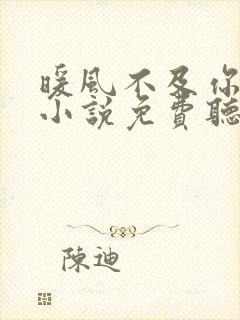 暖風不及你
小說免費聽
陳迪